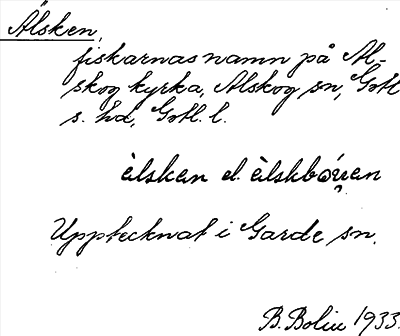 Älsken,
fiskarnas namn på Al-
skog kyrka, Alskog sn, Gotl
s. hd, Gotl. l.
älsken el.
Upptecknat i Garde sn.
B. Bolin 1933.